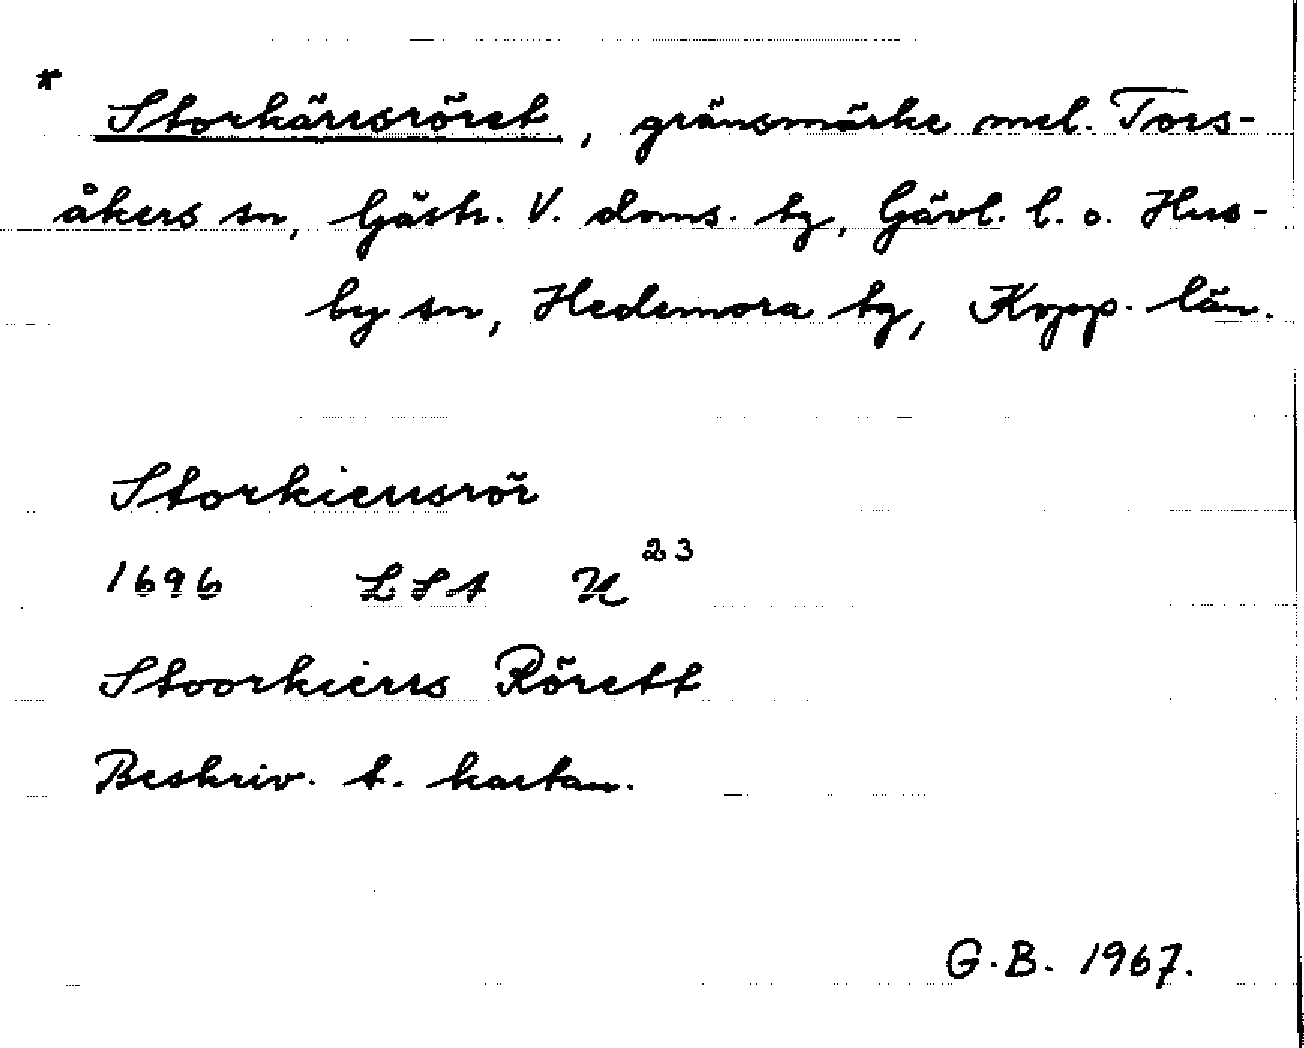 * Storkärrsröret, gränsmärke mel. Tors-
åkers sn, Gästr. V. doms. tg, Gävl. l. o. Hus-
by sn, Hedemora tg, Kopp. län.
Storkierrsrör
1696 LSA U 23
Stoorkierrs Rörett
Beskriv. t. kartan.
G.B. 1967.